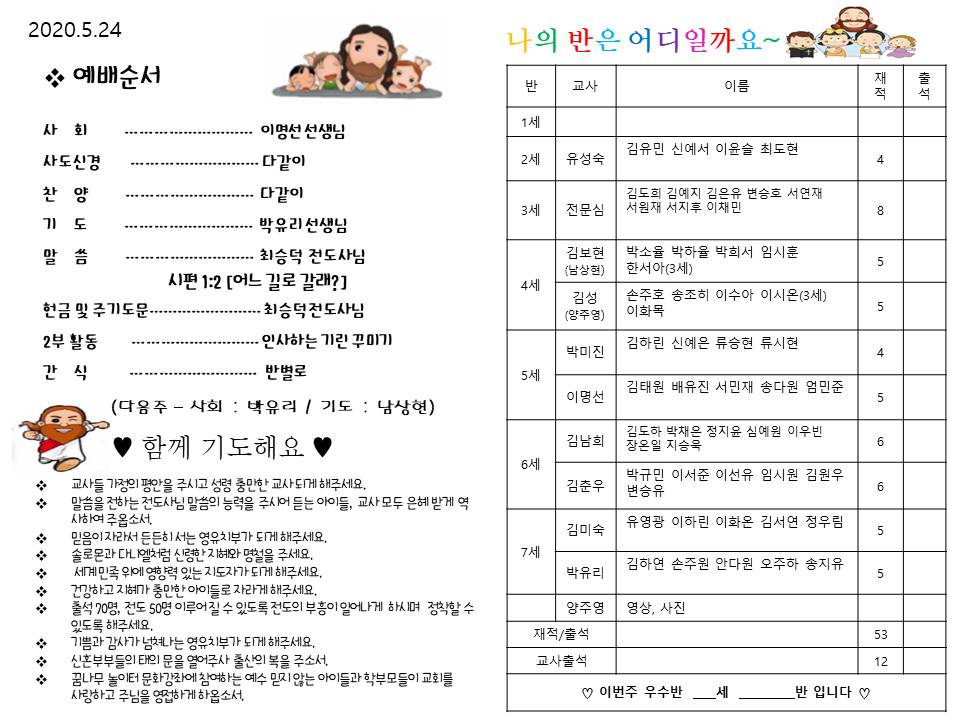 2020.5.24
❖ 예배순서
사 회 --------------------------- 이명선선생님
사도신경 --------------------------- 다같이
찬 양 --------------------------- 다같이
기 도 --------------------------- 박유리선생님
말 씀 --------------------------- 최승덕 전도사님
시편 1:2 [어느 길로 갈래?]
헌금 및 주기도문------------------------ 최승덕전도사님
2부 활동 --------------------------- 인사하는기린 꾸미기
간 식 --------------------------- 반별로
(다음주 – 사회 : 박유리 / 기도 : 남상현)
♥ 함께 기도해요 ♥
❖ 교사들 가정의 평안을 주시고 성령 충만한 교사되게 해주세요.
❖ 말씀을 전하는 전도사님 말씀의 능력을 주시어 듣는 아이들, 교사 모두 은혜 받게 역
사하여 주옵소서.
❖ 믿음이 자라서 든든히 서는 영유치부가 되게 해주세요.
❖ 솔로몬과 다니엘처럼 신령한 지혜와 명철을 주세요.
❖ 세계 민족 위에 영향력 있는 지도자가 되게 해주세요.
❖ 건강하고 지혜가 충만한 아이들로 자라게 해주세요.
❖ 출석 70명, 전도 50명 이루어 질 수 있도록 전도의 부흥이 일어나게 하시며 정착할 수
있도록 해주세요.
❖ 기쁨과 감사가 넘쳐나는 영유치부가 되게 해주세요.
❖ 신혼부부들의 태의 문을 열어주사 출산의 복을 주소서.
❖ 꿈나무 놀이터 문화강좌에 참여하는 예수 믿지 않는 아이들과 학부모들이 교회를
사랑하고 주님을 영접하게 하옵소서.
나의 반은 어디일까요~
반 교사 이름 재적 출석
1세
2세 유성숙 김유민 신예서 이윤슬 최도현 4
3세 전문심 김도희 김예지 김은유 변승호 서연재
서원재 서지후 이채민 8
4세 김보현 (남상현) 박소율 박하율 박희서 임시훈
한서아(3세) 5
김성 (양주영) 손주호 송조히 이수아 이시온(3세)
이화목 5
5세 박미진 김하린 신예은 류승현 류시현 4
이명선 김태원 배유진 서민재 송다원 엄민준 5
6세 김남희 김도하 박채은 정지윤 심예원 이우빈
장온일 지승욱 6
김춘우 박규민 이서준 이선유 임시원 김원우
변승유 6
7세 김미숙 유영광 이하린 이화온 김서연 정우림 5
박유리 김하연 손주원 안다원 오주하 송지유 5
양주영 영상, 사진
재적/출석 53
교사출석 12
♡ 이번주 우수반 ___세 ________반 입니다 ♡